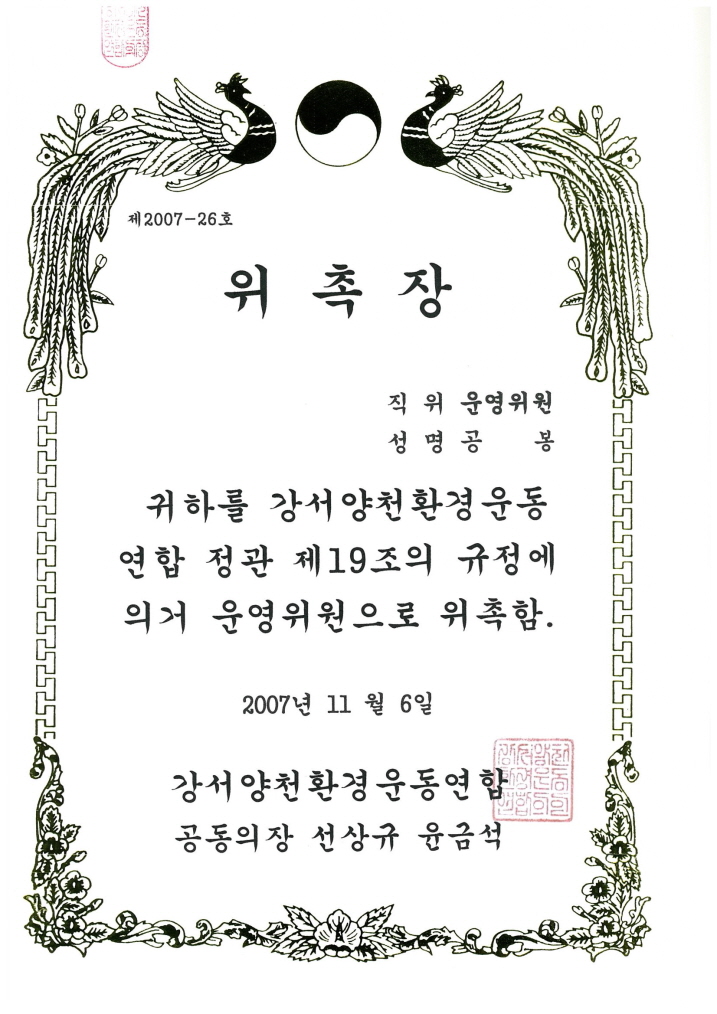 제2007-26호
위 촉 장
직 위 운영위원
성 명 공 봉
귀하를 강서양천환경운동
연합 정관 제19조의 규정에
의거 운영위원으로 위촉함.
2007년 11 월 6일
강서양천환경운동연합
공동의장 선상규 윤금석